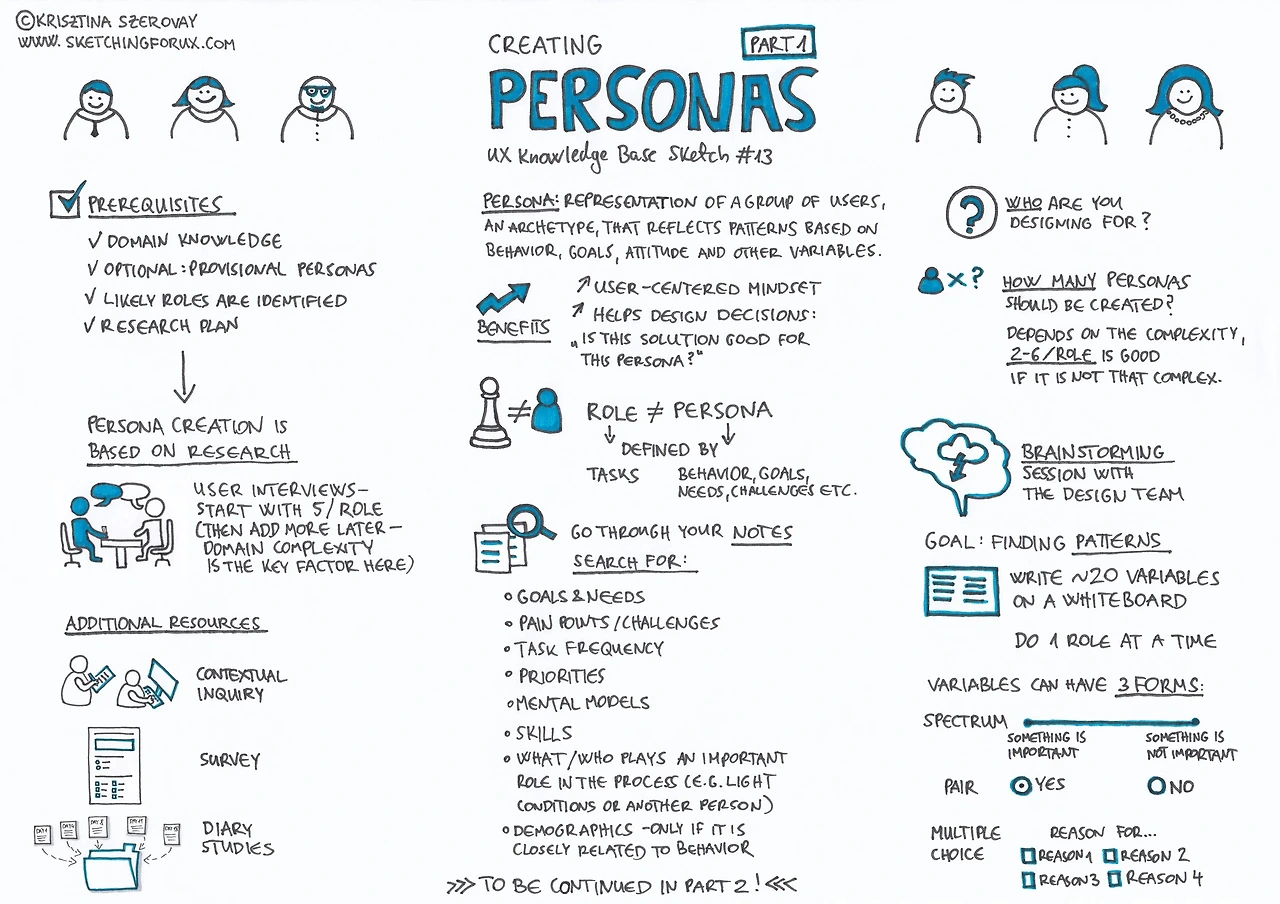 ©KRISZTINA SZEROVAY
WWW.SKETCHINGFORUX.COM
CREATING
PART 1
PERSONAS
UX Knowledge Base Sketch #13
PREREQUISITES
√ DOMAIN KNOWLEDGE
√ OPTIONAL: PROVISIONAL PERSONAS
√ LIKELY ROLES ARE IDENTIFIED
√ RESEARCH PLAN
PERSONA CREATION IS
BASED ON RESEARCH
USER INTERVIEWS–
START WITH 5/ROLE
(THEN ADD MORE LATER–
DOMAIN COMPLEXITY
IS THE KEY FACTOR HERE)
ADDITIONAL RESOURCES
CONTEXTUAL
INQUIRY
SURVEY
DIARY
STUDIES
PERSONA: REPRESENTATION OF A GROUP OF USERS,
AN ARCHETYPE, THAT REFLECTS PATTERNS BASED ON
BEHAVIOR, GOALS, ATTITUDE AND OTHER VARIABLES.
BENEFITS
↗ USER-CENTERED MINDSET
↗ HELPS DESIGN DECISIONS:
„IS THIS SOLUTION GOOD FOR
THIS PERSONA?"
≠
ROLE ≠ PERSONA
DEFINED BY
TASKS
BEHAVIOR, GOALS,
NEEDS, CHALLENGES ETC.
GO THROUGH YOUR NOTES
SEARCH FOR:
○ GOALS & NEEDS
○ PAIN POINTS/CHALLENGES
○ TASK FREQUENCY
○ PRIORITIES
○ MENTAL MODELS
○ SKILLS
○ WHAT/WHO PLAYS AN IMPORTANT
ROLE IN THE PROCESS (E.G. LIGHT
CONDITIONS OR ANOTHER PERSON)
○ DEMOGRAPHICS -ONLY IF IT IS
CLOSELY RELATED TO BEHAVIOR
>>> TO BE CONTINUED IN PART 2! <<<
?
WHO ARE YOU
DESIGNING FOR?
×?
HOW MANY PERSONAS
SHOULD BE CREATED?
DEPENDS ON THE COMPLEXITY,
2-6/ROLE IS GOOD
IF IT IS NOT THAT COMPLEX.
BRAINSTORMING
SESSION WITH
THE DESIGN TEAM
GOAL: FINDING PATTERNS
WRITE ~20 VARIABLES
ON A WHITEBOARD
DO 1 ROLE AT A TIME
VARIABLES CAN HAVE 3 FORMS:
SPECTRUM
SOMETHING IS
IMPORTANT
SOMETHING IS
NOT IMPORTANT
PAIR
YES
NO
MULTIPLE
CHOICE
REASON FOR...
REASON 1
REASON 2
REASON 3
REASON 4